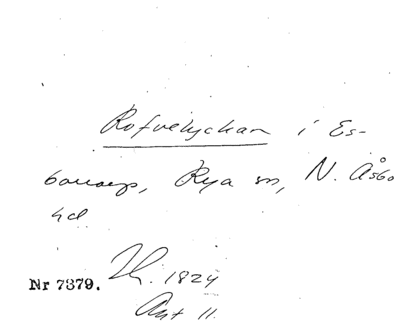 Rofvelyckan i Es-
bonarp, Rya sn, N. Åsbo
hd
Nr 7379. 1824
Akt 11.